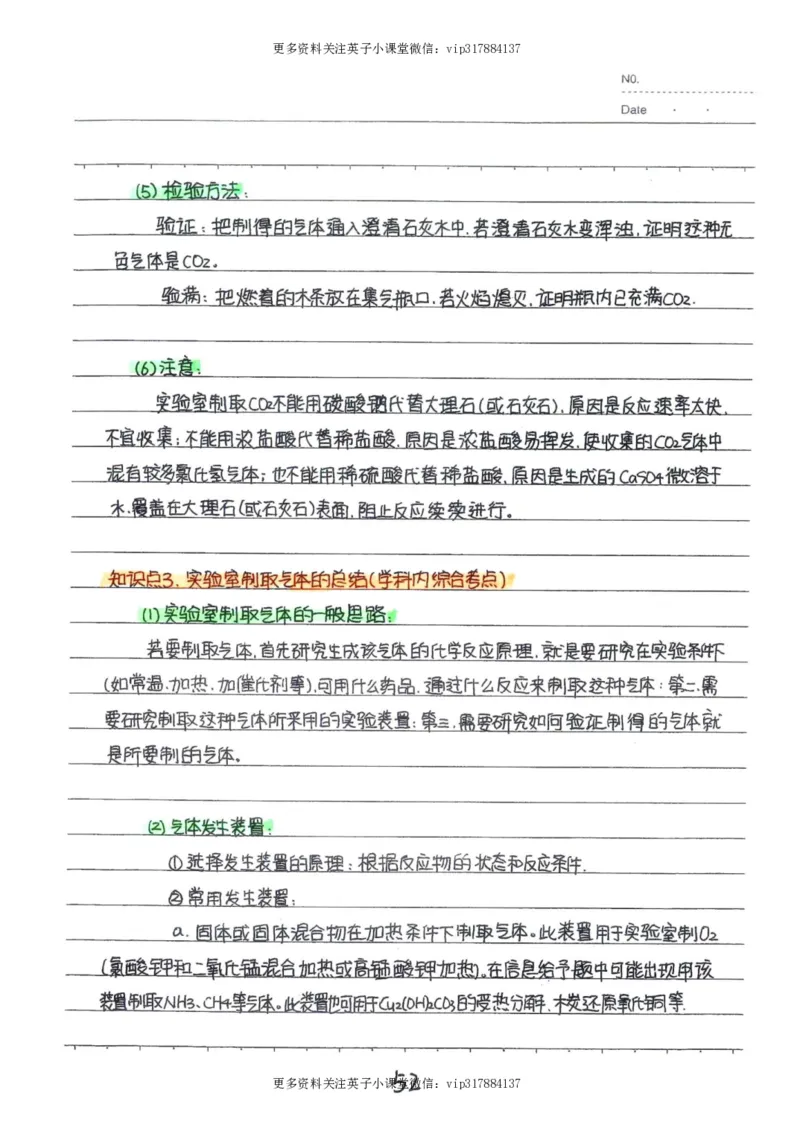 更多资料关注英子小课堂微信：vip317884137
NO.
Date
(5) 检验方法：
验证：把制得的气体通入澄清石灰水中,若澄清石灰水变浑浊,证明这种无
色气体是CO₂。
验满：把燃着的木条放在集气瓶口,若火焰熄灭,证明瓶内已充满CO₂.
(6)注意：
实验室制取CO₂不能用碳酸钠代替大理石(或石灰石),原因是反应速率太快,
不宜收集；不能用浓盐酸代替稀盐酸,原因是浓盐酸易挥发,使收集的CO₂气体中
混有较多氯化氢气体；也不能用稀硫酸代替稀盐酸,原因是生成的CaSO4微溶于
水,覆盖在大理石(或石灰石)表面,阻止反应继续进行。
知识点3.实验室制取气体的总结(学科内综合考点)
(1)实验室制取气体的一般思路：
若要制取气体,首先研究生成该气体的化学反应原理,就是要研究在实验条件下
(如常温.加热.加催化剂等),可用什么药品,通过什么反应来制取这种气体；第二.需
要研究制取这种气体所采用的实验装置；第三.需要研究如何验证制得的气体就
是所要制的气体。
(2)气体发生装置：
①选择发生装置的原理：根据反应物的状态和反应条件.
②常用发生装置：
a. 固体或固体混合物在加热条件下制取气体。此装置用于实验室制O₂
(氯酸钾和二氧化锰混合加热或高锰酸钾加热)。在信息给予题中可能出现用该
装置制取NH3、CH4等气体。此装置也可用于Cu₂(OH)₂CO₃的受热分解,木炭还原氧化铜等.
52
更多资料关注英子小课堂微信：vip317884137